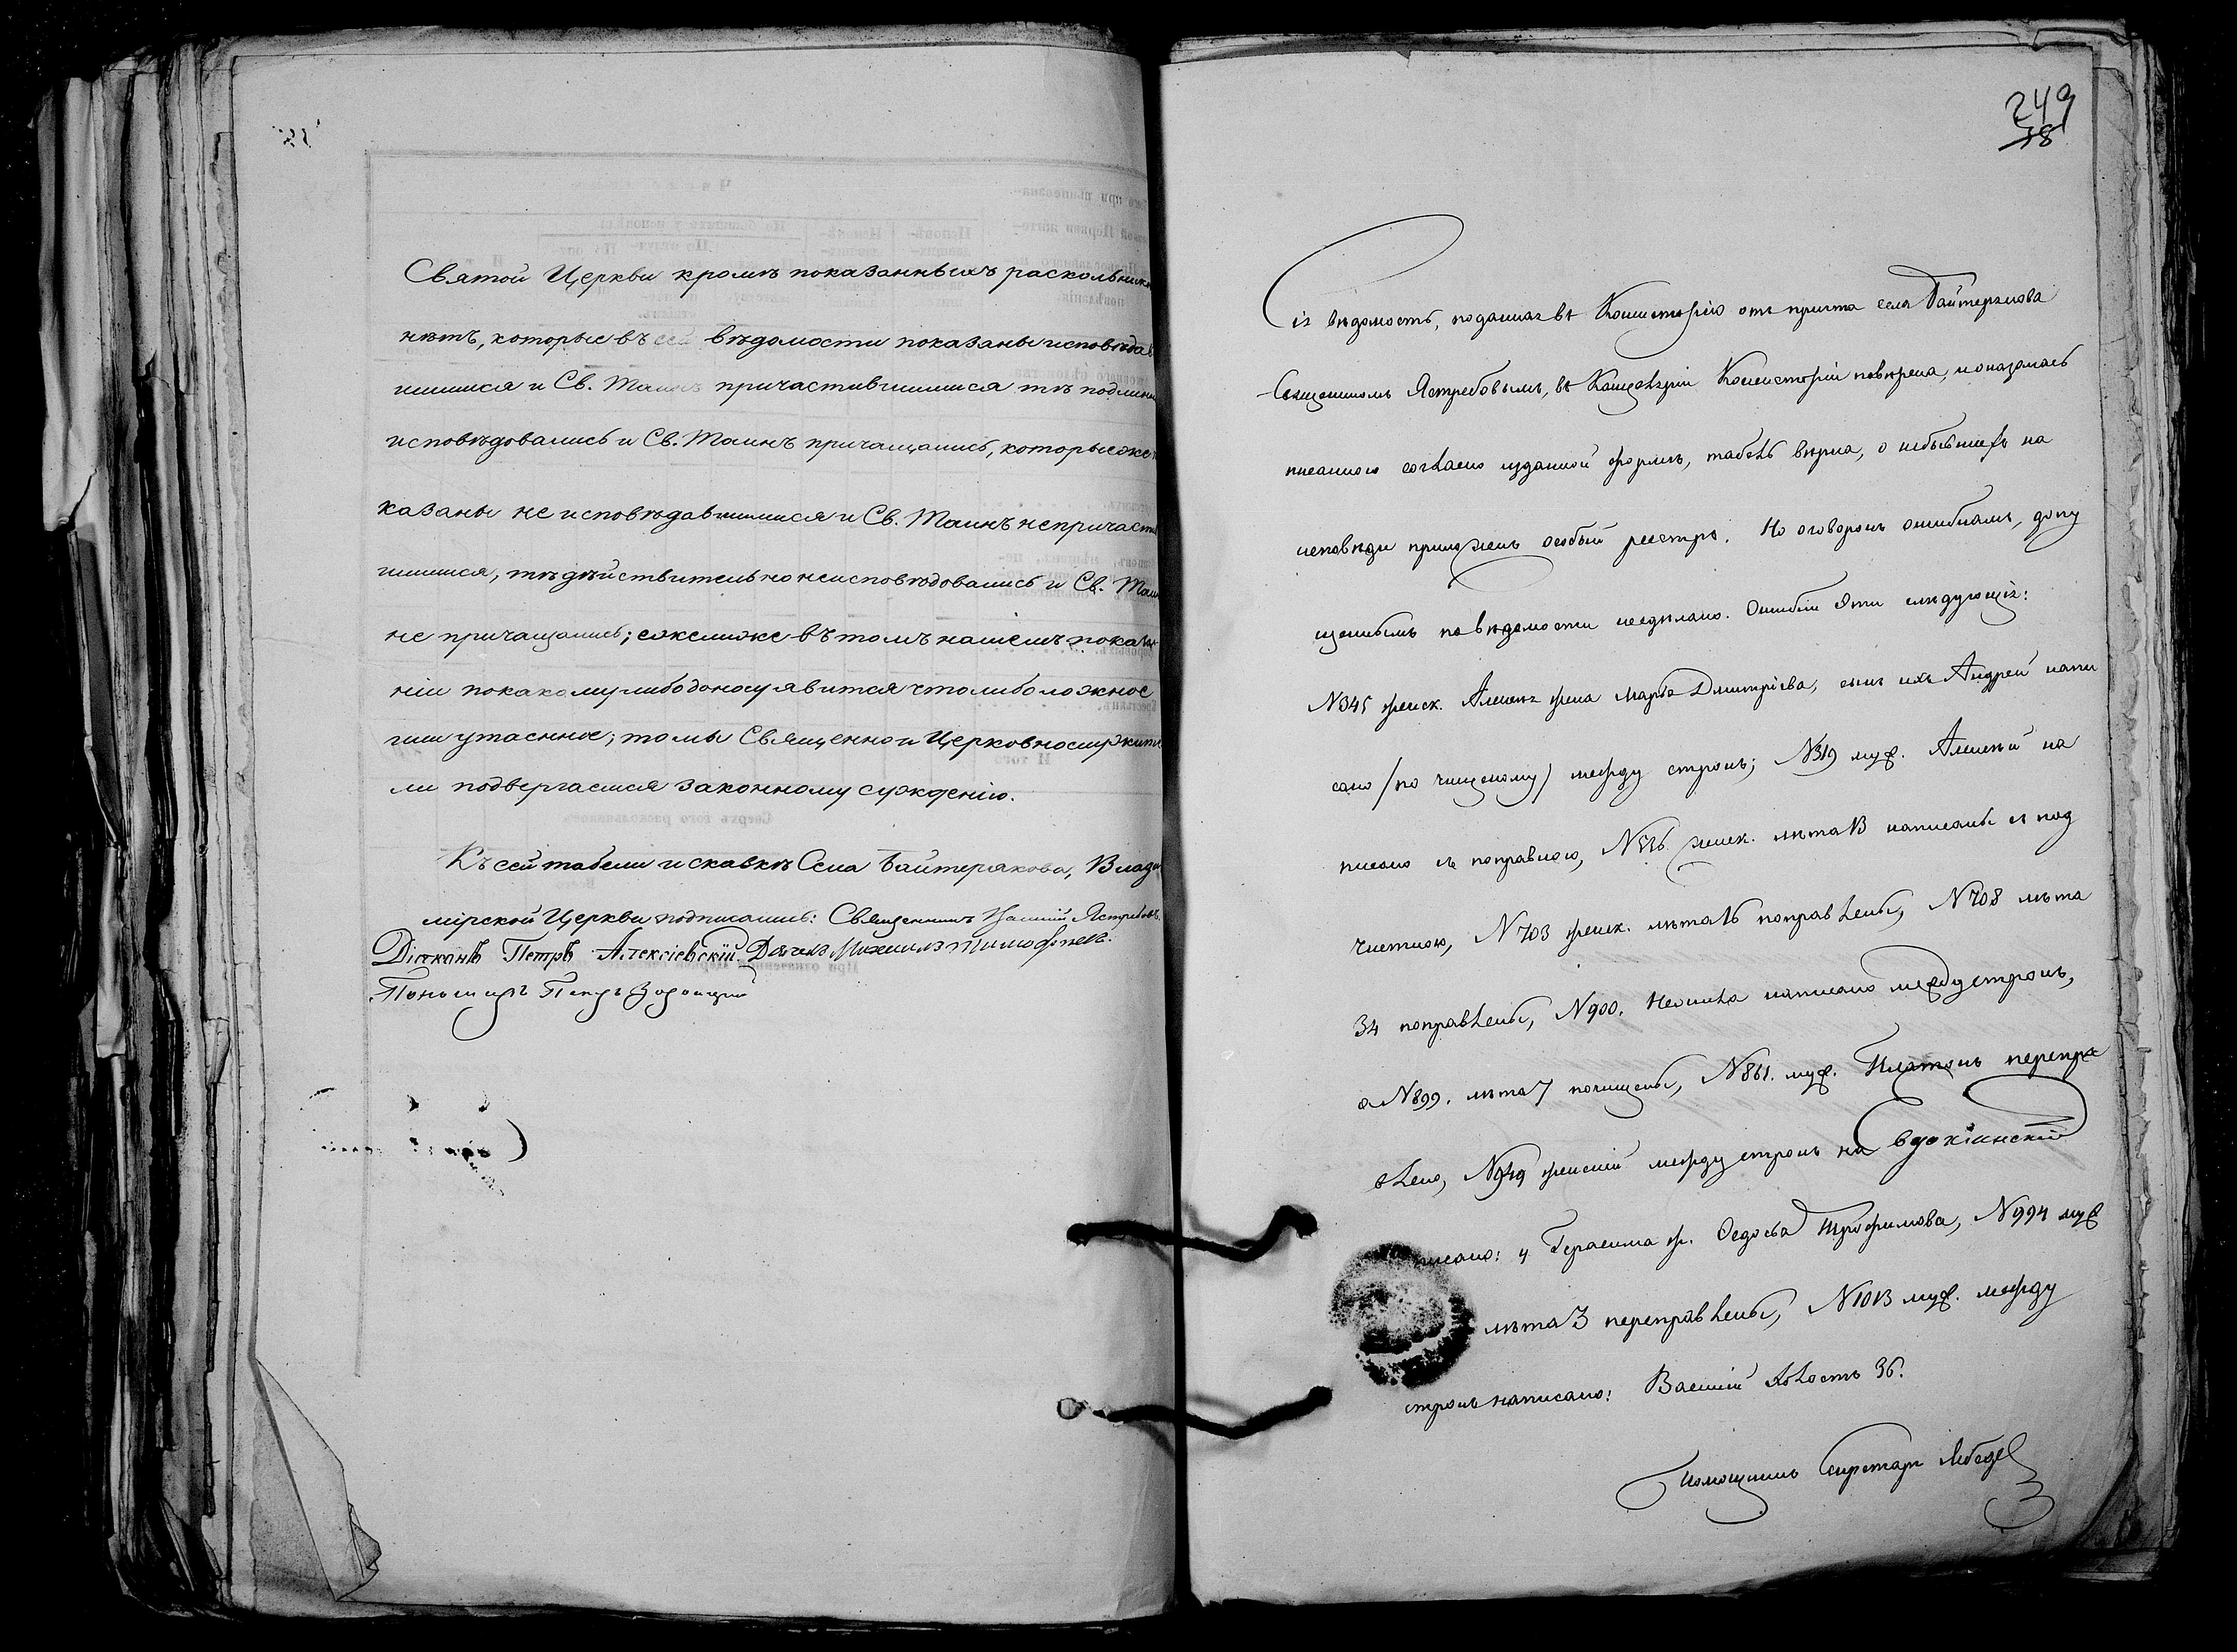 Святой Церкви кромѣ показанныхъ раскольник
нѣтъ, которые въ сей вѣдомости показаны исповѣдав
шимися и Св. Таинъ причастившимися тѣ подлинн
исповѣдовались и Св. Таинъ причащались, которые же
казаны не исповѣдавшимися и Св. Таинъ непричасти
шимися, тѣ дѣйствительно неисповѣдовались и Св. Таин
не причащались; ежелиже въ томъ нашемъ показа
ніи покакому либо доносу явится что либо ложное
или утаенное; то мы Священно и Церковнослужите
ли подвергаемся законному сужденію.
Къ сей табели и скаскѣ Села Байтерякова, Влади
мірской Церкви подписались: Священникъ Ястребовъ.
Діаконъ Петръ Алексіевскій. Дьячекъ Михаилъ Тимофеевъ.
Пономарь Петръ
249
18
Сія вѣдомость, поданная въ Консисторію отъ причта села Байтерякова
Священникомъ Ястребовымъ, въ Канцеляріи Консисторіи повѣрена, и оказалась
писанною согласно изданной формѣ, табель вѣрна, о небывшихъ на
исповѣди приложенъ особый реестръ. Но оговорокъ ошибкамъ, допу
щеннымъ по вѣдомости несдѣлано. Ошибки эти слѣдующія:
N345 женск. Алексѣя жена Марѳа Дмитріева, сынъ ихъ Андрей напи
сано /по чищеному/ между строкъ; N319 муж. Алексѣй на
писано съ поправкою, N336 женск. лѣта 13 написаны съ под
чисткою, N703 женск. лѣта 16 поправлены, N708 лѣта
34 поправлены, N900. написано между строкъ,
а N899. лѣта 7 почищены, N861. муж. Платонъ перепра
влено, N949 женскій между строкъ на
писано: у Герасима ж. Ѳедосья Трофимова, N994 муж
лѣта 3 переправлены, N1013 муж. между
строкъ написано: Василій холостъ 36.
Помощникъ Секретаря Лебедев